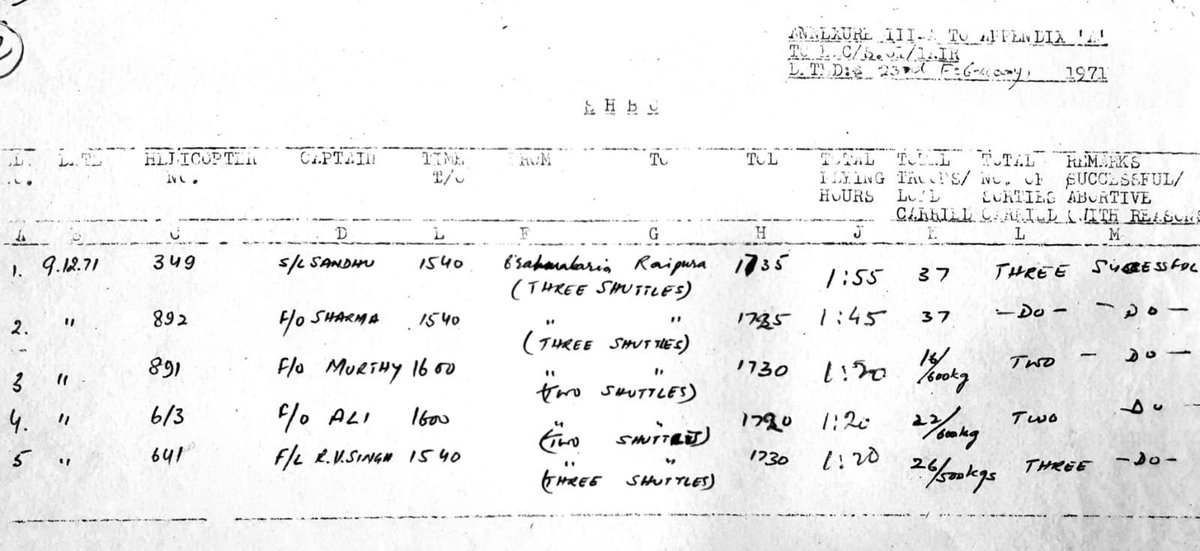 ANNEXURE III-A TO APPENDIX 'A'
DATED: 23rd February, 1971
S H B C
DATE HELICOPTER CAPTAIN TIME FROM TO TOL TOTAL TOTAL TOTAL REMARKS
NO. T/O FLYING TROOPS/ NO. OF SUCCESSFUL/
HOURS LOAD SORTIES ABORTIVE
CARRIED CARRIED (WITH REASONS
A B C D E F G H J K L M
1. 9.12.71 349 S/L SANDHU 1540 Brahmanbaria Raipura 1735 1:55 37 THREE SUCCESSFUL
(THREE SHUTTLES)
2. " 892 F/O SHARMA 1540 " " 1725 1:45 37 -DO- -DO-
(THREE SHUTTLES)
3 " 891 F/O MURTHY 1600 " " 1730 1:20 16/600kg TWO -DO-
(TWO SHUTTLES)
4. " 613 F/O ALI 1600 " " 1720 1:20 22/600kg TWO -DO-
(TWO SHUTTLES)
5 " 641 F/L R.V.SINGH 1540 " " 1730 1:20 26/500kgs THREE -DO-
(THREE SHUTTLES)